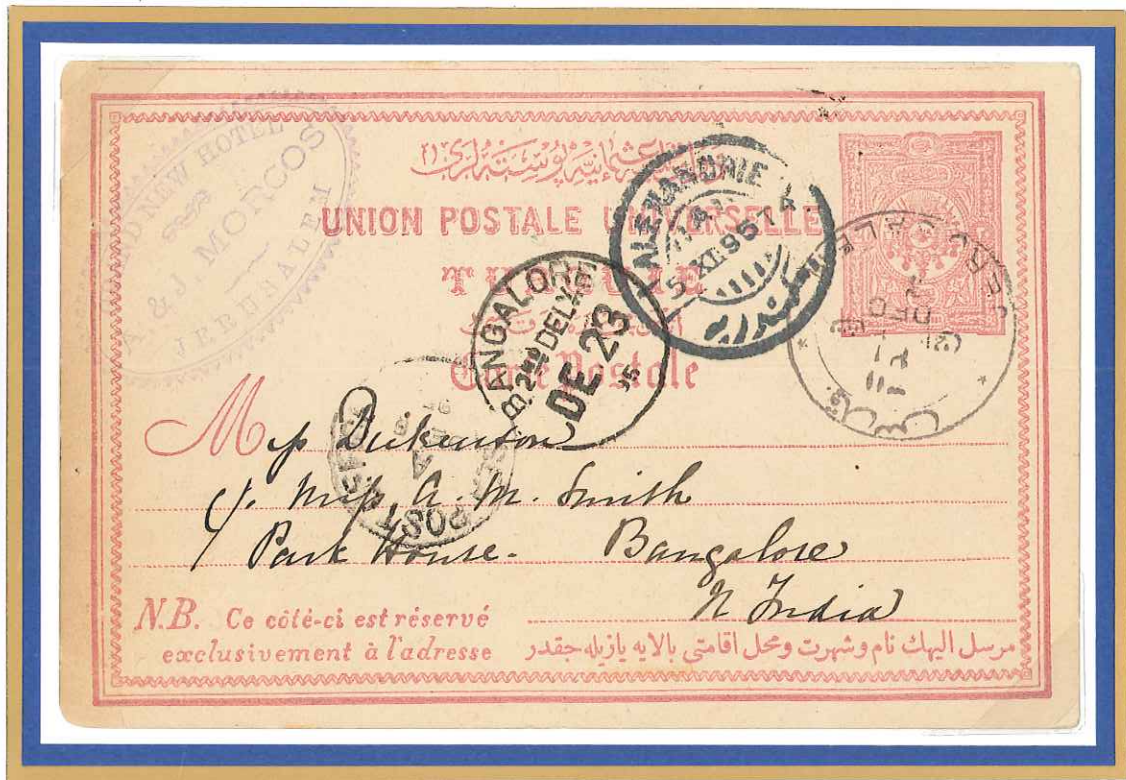 NEW HOTEL
A. & J. MORCOS
JERUSALEM
UNION POSTALE UNIVERSELLE
Carte Postale
ALEXANDRIE
5 XII 95 T 4
BANGALORE
2ND DELY
DE 23
95
2 DEC
POST
Miss Dickenson
c/o Miss A. M. Smith
Park House. Bangalore
India
N.B. Ce côté-ci est réservé
exclusivement à l'adresse
مرسل اليهك نام وشهرت ومحل اقامتى بالايه يازيله جقدر